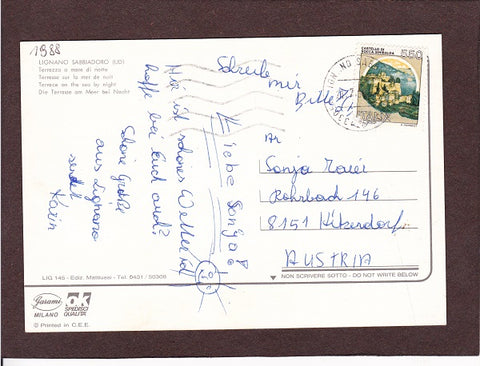 1988
LIGNANO SABBIADORO (UD)
Terrazza a mare di notte
Terrasse sur la mer de nuit
Terrace on the sea by night
Die Terrasse am Meer bei Nacht
Schreibe
mir
Bitte!
CASTELLO DI
ROCCA SINIBALDA
550
ITALIA
Liebe Sonja!
Hier ist schönes Wetter
hoffe bei Euch auch?
Schöne Grüße
aus Lignano
sendet
Karin
An
Sonja
Rohrbach 146
8151 Hitzendorf
AUSTRIA
LIG 145 - Ediz. Mattiussi - Tel. 0431/50306
NON SCRIVERE SOTTO - DO NOT WRITE BELOW
Garami
MILANO
OK
SPEDISCI
QUALITÀ
© Printed in C.E.E.